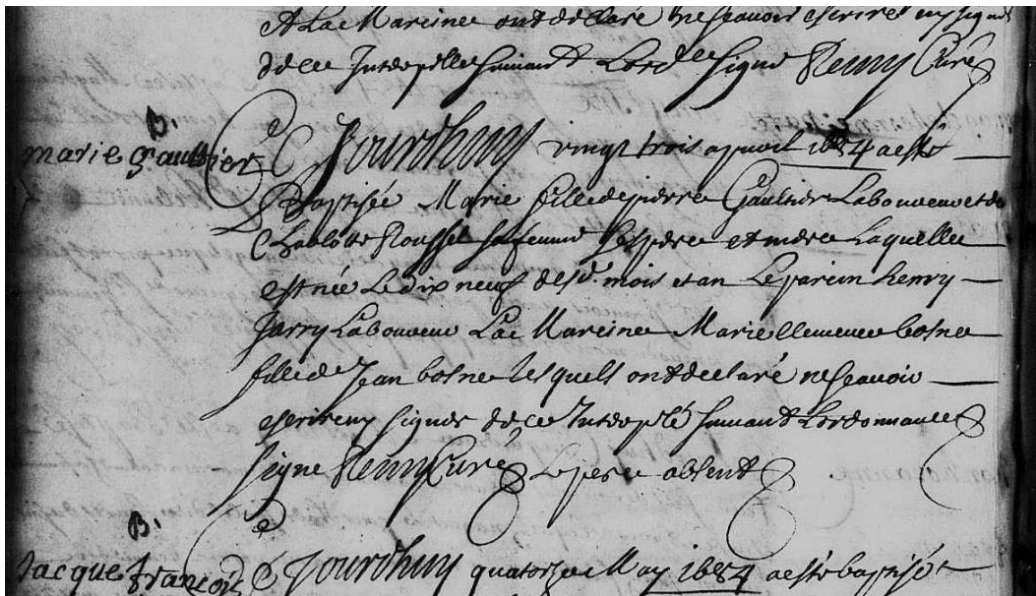 et La Mareine ont declaré ne scavoir escrire ny signer
de ce Interpellé suivant Lord.ce signé Remy Curé
B.
marie gaultier
Ce Jourdhuy vingt trois apvril 1684 a esté
Baptisée Marie fille de pierre Gaultier Laboureur et de
Charlotte Roussel sa femme Ses pere et mere Laquelle
est née Le dix neuf desd. mois et an Le parein henry
Jarry Laboureur La Mareine Marie Clemence bosne
fille de Jean bosne Lesquels ont declaré ne scavoir
escrire ny signer de ce Interpelé suivant Lordonnance
signé Remy Curé Le pere absent
B.
Jacque francois
Ce Jourdhuy quatorze May 1684 a esté baptisé